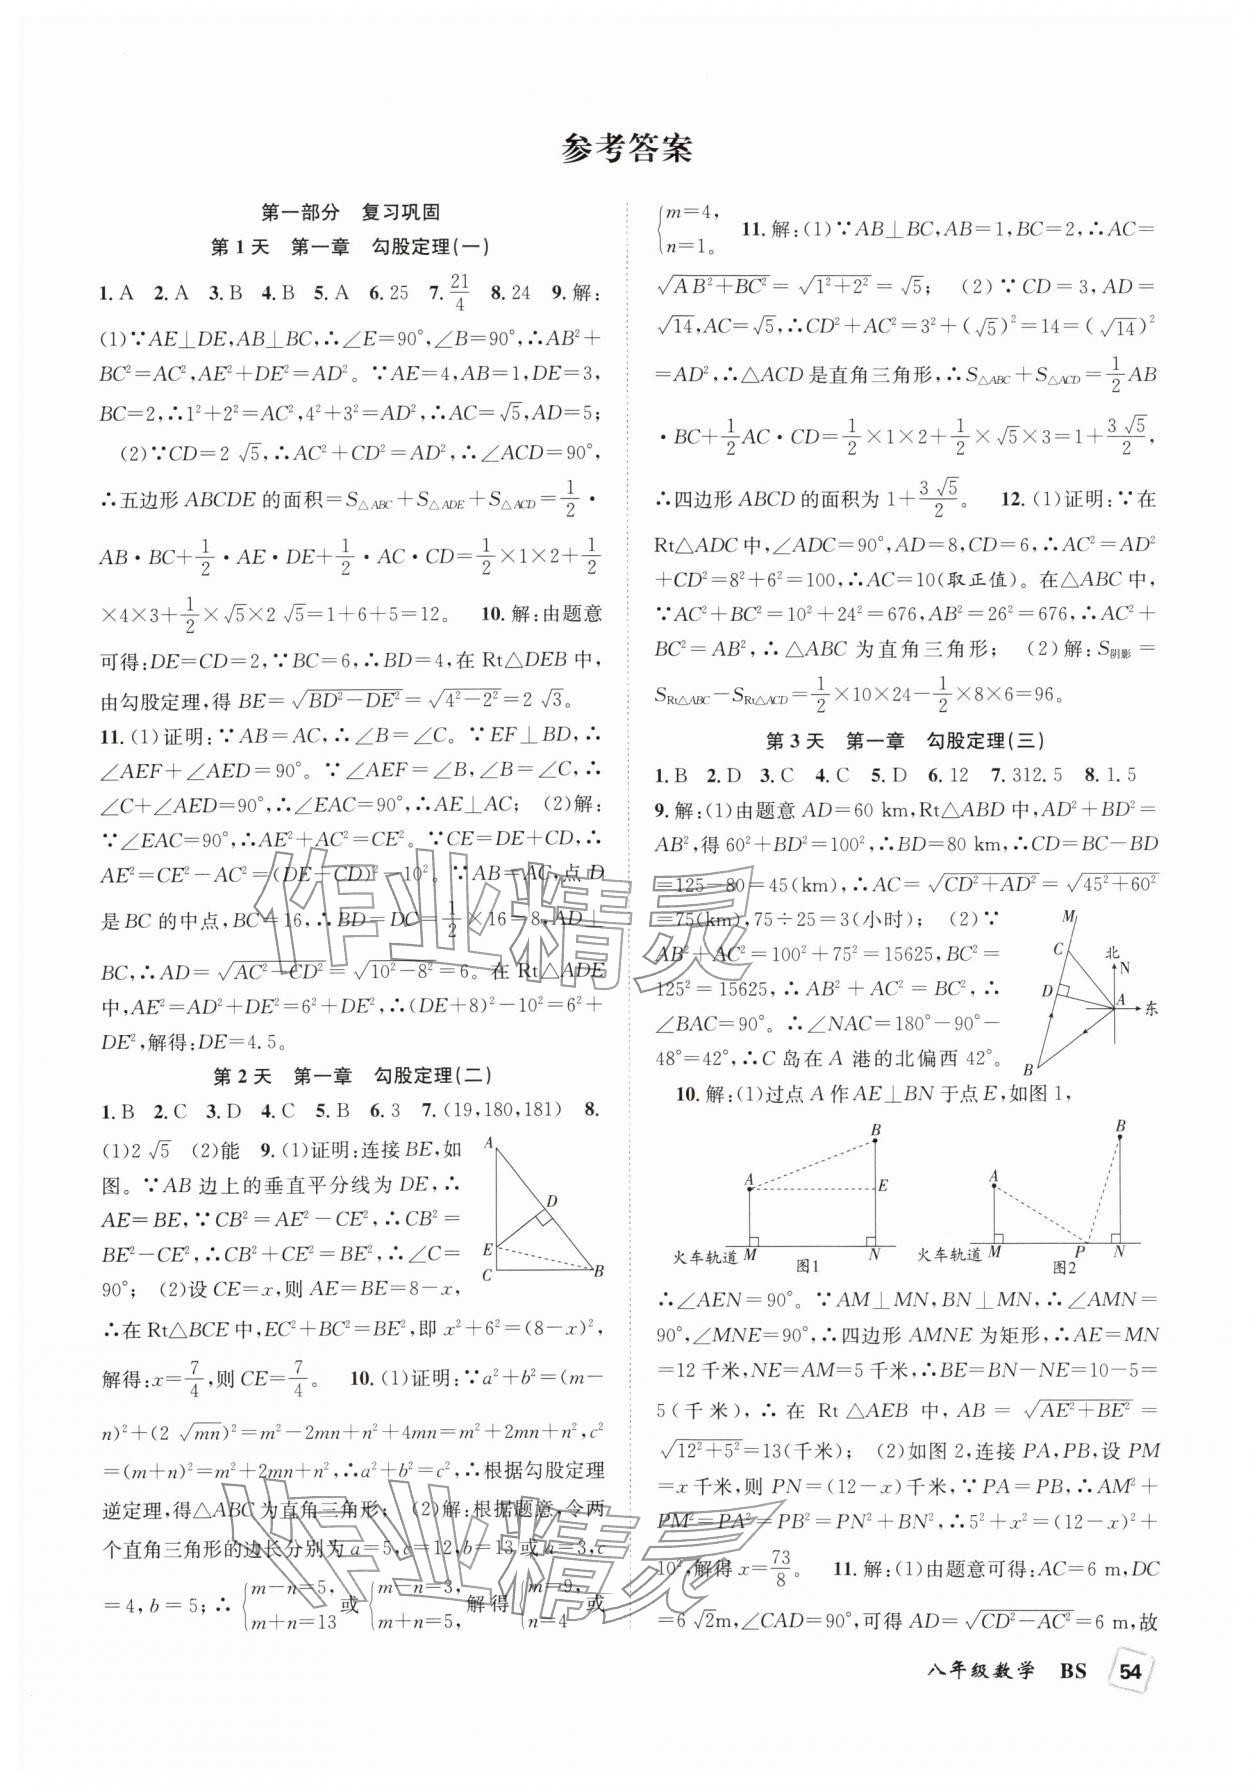 参考答案
第一部分　复习巩固
第1天　第一章　勾股定理(一)
1.A　2.A　3.B　4.B　5.A　6.25　7.21/4　8.24　9.解:
(1)∵AE⊥DE,AB⊥BC,∴∠E=90°,∠B=90°,∴AB²+
BC²=AC²,AE²+DE²=AD²。∵AE=4,AB=1,DE=3,
BC=2,∴1²+2²=AC²,4²+3²=AD²,∴AC=√5,AD=5;
(2)∵CD=2√5,∴AC²+CD²=AD²,∴∠ACD=90°,
∴五边形ABCDE的面积=S△ABC+S△ADE+S△ACD=1/2·
AB·BC+1/2·AE·DE+1/2·AC·CD=1/2×1×2+1/2
×4×3+1/2×√5×2√5=1+6+5=12。　10.解:由题意
可得:DE=CD=2,∵BC=6,∴BD=4,在Rt△DEB中,
由勾股定理,得BE=√(BD²-DE²)=√(4²-2²)=2√3。
11.(1)证明:∵AB=AC,∴∠B=∠C。∵EF⊥BD,∴
∠AEF+∠AED=90°。∵∠AEF=∠B,∠B=∠C,∴
∠C+∠AED=90°,∴∠EAC=90°,∴AE⊥AC;　(2)解:
∵∠EAC=90°,∴AE²+AC²=CE²。∵CE=DE+CD,∴
AE²=CE²-AC²=(DE+CD)²-10²。∵AB=AC,点D
是BC的中点,BC=16,∴BD=DC=1/2×16=8,AD⊥
BC,∴AD=√(AC²-CD²)=√(10²-8²)=6。在Rt△ADE
中,AE²=AD²+DE²=6²+DE²,∴(DE+8)²-10²=6²+
DE²,解得:DE=4.5。
第2天　第一章　勾股定理(二)
1.B　2.C　3.D　4.C　5.B　6.3　7.(19,180,181)　8.
(1)2√5　(2)能　9.(1)证明:连接BE,如
图。∵AB边上的垂直平分线为DE,∴
AE=BE,∵CB²=AE²-CE²,∴CB²=
BE²-CE²,∴CB²+CE²=BE²,∴∠C=
90°;　(2)设CE=x,则AE=BE=8-x,
A
D
E
C
B
∴在Rt△BCE中,EC²+BC²=BE²,即x²+6²=(8-x)²,
解得:x=7/4,则CE=7/4。　10.(1)证明:∵a²+b²=(m-
n)²+(2√mn)²=m²-2mn+n²+4mn=m²+2mn+n²,c²
=(m+n)²=m²+2mn+n²,∴a²+b²=c²,∴根据勾股定理
逆定理,得△ABC为直角三角形;　(2)解:根据题意,令两
个直角三角形的边长分别为a=5,c=12,b=13或a=3,c
=4,b=5;∴{m-n=5,m+n=13或{m-n=3,m+n=5,解得{m=9,n=4或
{m=4,n=1。　11.解:(1)∵AB⊥BC,AB=1,BC=2,∴AC=
√(AB²+BC²)=√(1²+2²)=√5;　(2)∵CD=3,AD=
√14,AC=√5,∴CD²+AC²=3²+(√5)²=14=(√14)²
=AD²,∴△ACD是直角三角形,∴S△ABC+S△ACD=1/2AB
·BC+1/2AC·CD=1/2×1×2+1/2×√5×3=1+3√5/2,
∴四边形ABCD的面积为1+3√5/2。　12.(1)证明:∵在
Rt△ADC中,∠ADC=90°,AD=8,CD=6,∴AC²=AD²
+CD²=8²+6²=100,∴AC=10(取正值)。在△ABC中,
∵AC²+BC²=10²+24²=676,AB²=26²=676,∴AC²+
BC²=AB²,∴△ABC为直角三角形;　(2)解:S阴影=
SRt△ABC-SRt△ACD=1/2×10×24-1/2×8×6=96。
第3天　第一章　勾股定理(三)
1.B　2.D　3.C　4.C　5.D　6.12　7.312.5　8.1.5
9.解:(1)由题意AD=60 km,Rt△ABD中,AD²+BD²=
AB²,得60²+BD²=100²,∴BD=80 km,∴CD=BC-BD
=125-80=45(km),∴AC=√(CD²+AD²)=√(45²+60²)
=75(km),75÷25=3(小时);　(2)∵
AB²+AC²=100²+75²=15625,BC²=
125²=15625,∴AB²+AC²=BC²,∴
∠BAC=90°。∴∠NAC=180°-90°-
48°=42°,∴C岛在A港的北偏西42°。
M
C
北
N
D
A
东
B
10.解:(1)过点A作AE⊥BN于点E,如图1,
B
A
E
火车轨道 M
N
图1
B
A
火车轨道 M
P
N
图2
∴∠AEN=90°。∵AM⊥MN,BN⊥MN,∴∠AMN=
90°,∠MNE=90°,∴四边形AMNE为矩形,∴AE=MN
=12千米,NE=AM=5千米,∴BE=BN-NE=10-5=
5(千米),∴在Rt△AEB中,AB=√(AE²+BE²)=
√(12²+5²)=13(千米);　(2)如图2,连接PA,PB,设PM
=x千米,则PN=(12-x)千米,∵PA=PB,∴AM²+
PM²=PA²=PB²=PN²+BN²,∴5²+x²=(12-x)²+
10²,解得x=73/8。　11.解:(1)由题意可得:AC=6 m,DC
=6√2m,∠CAD=90°,可得AD=√(CD²-AC²)=6 m,故
八年级数学　BS　54
作业精灵
作业精灵